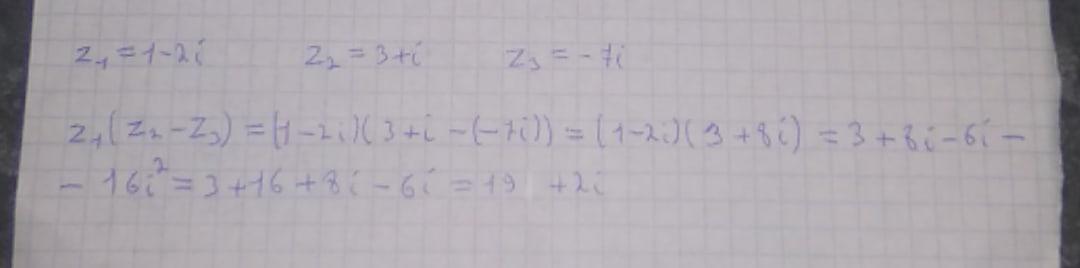 z₁ = 1-2i z₂ = 3+i z₃ = -7i
z₁(z₂-z₃) = (1-2i)(3+i-(-7i)) = (1-2i)(3+8i) = 3+8i-6i-
- 16i² = 3+16+8i-6i = 19 +2i